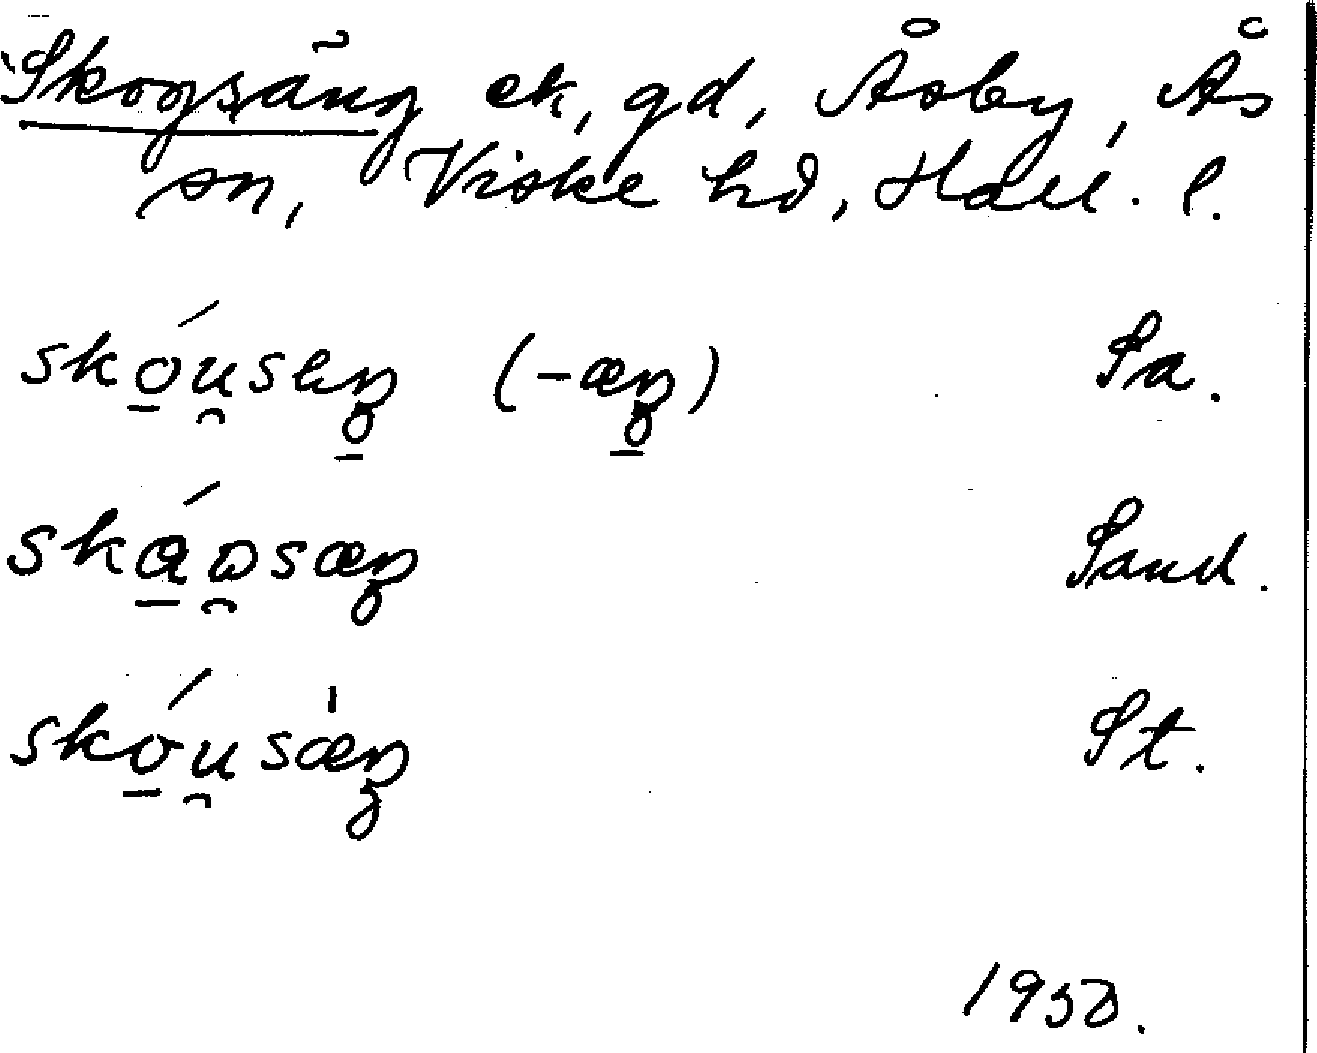 Skogsäng ek, gd, Åsby, Ås
sn, Viske hd, Hall. l.
skóu̯seŋ (-æŋ) Sa.
skáɒ̯sæŋ Sand.
skóu̯sæ̀ŋ St.
1958.